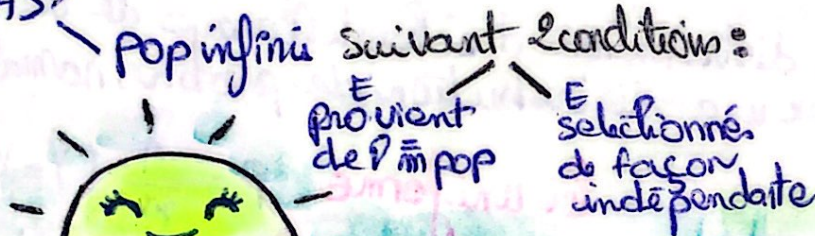 pop infinie suivant 2 conditions :
E provient
de l' m̄ pop
E sélectionnés
de façon
indépendante